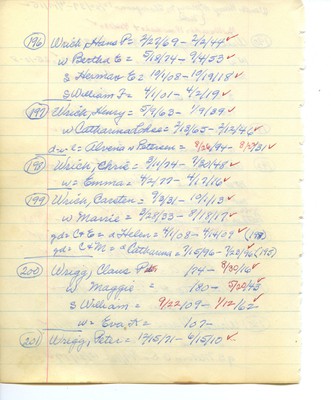 (196) Wrich, Hans P= 2/27/69 - 2/2/44 ✓
w Bertha C = 5/18/74 - 9/4/53 ✓
s Herman E = 10/1/08 - 10/19/18 ✓
s William J = 4/1/01 - 4/2/19 ✓
(197) Wrich, Henry = 5/9/63 - 1/9/39 ✓
w Catharina = 7/13/65 - 2/12/46 ✓
= Alvena w Petersen = 31 ✓
(198) Wrich, Chris = 3/11/74 - 7/30/48 ✓
w = Emma = 4/2/77 - 4/17/16 ✓
(199) Wrich, Carsten = 7/3/31 - 19/1/13 ✓
w Marrie = 2/25/33 - 8/18/17 ✓
gd = C+E = d Helen = 4/1/08 - 4/14/09 ✓ (198)
gd = C+M = d Catharina = 7/15/96 - 7/22/96 ✓ (195)
(200) Wrigg, Claus P 174 - 8/30/16 ✓
w Maggie = 180 - 5/20/43
s William = 9/22/09 - 1/12/62 ✓
w = Eva K = 107 -
(201) Wrigg, Peter = 12/15/71 - 6/15/10 ✓